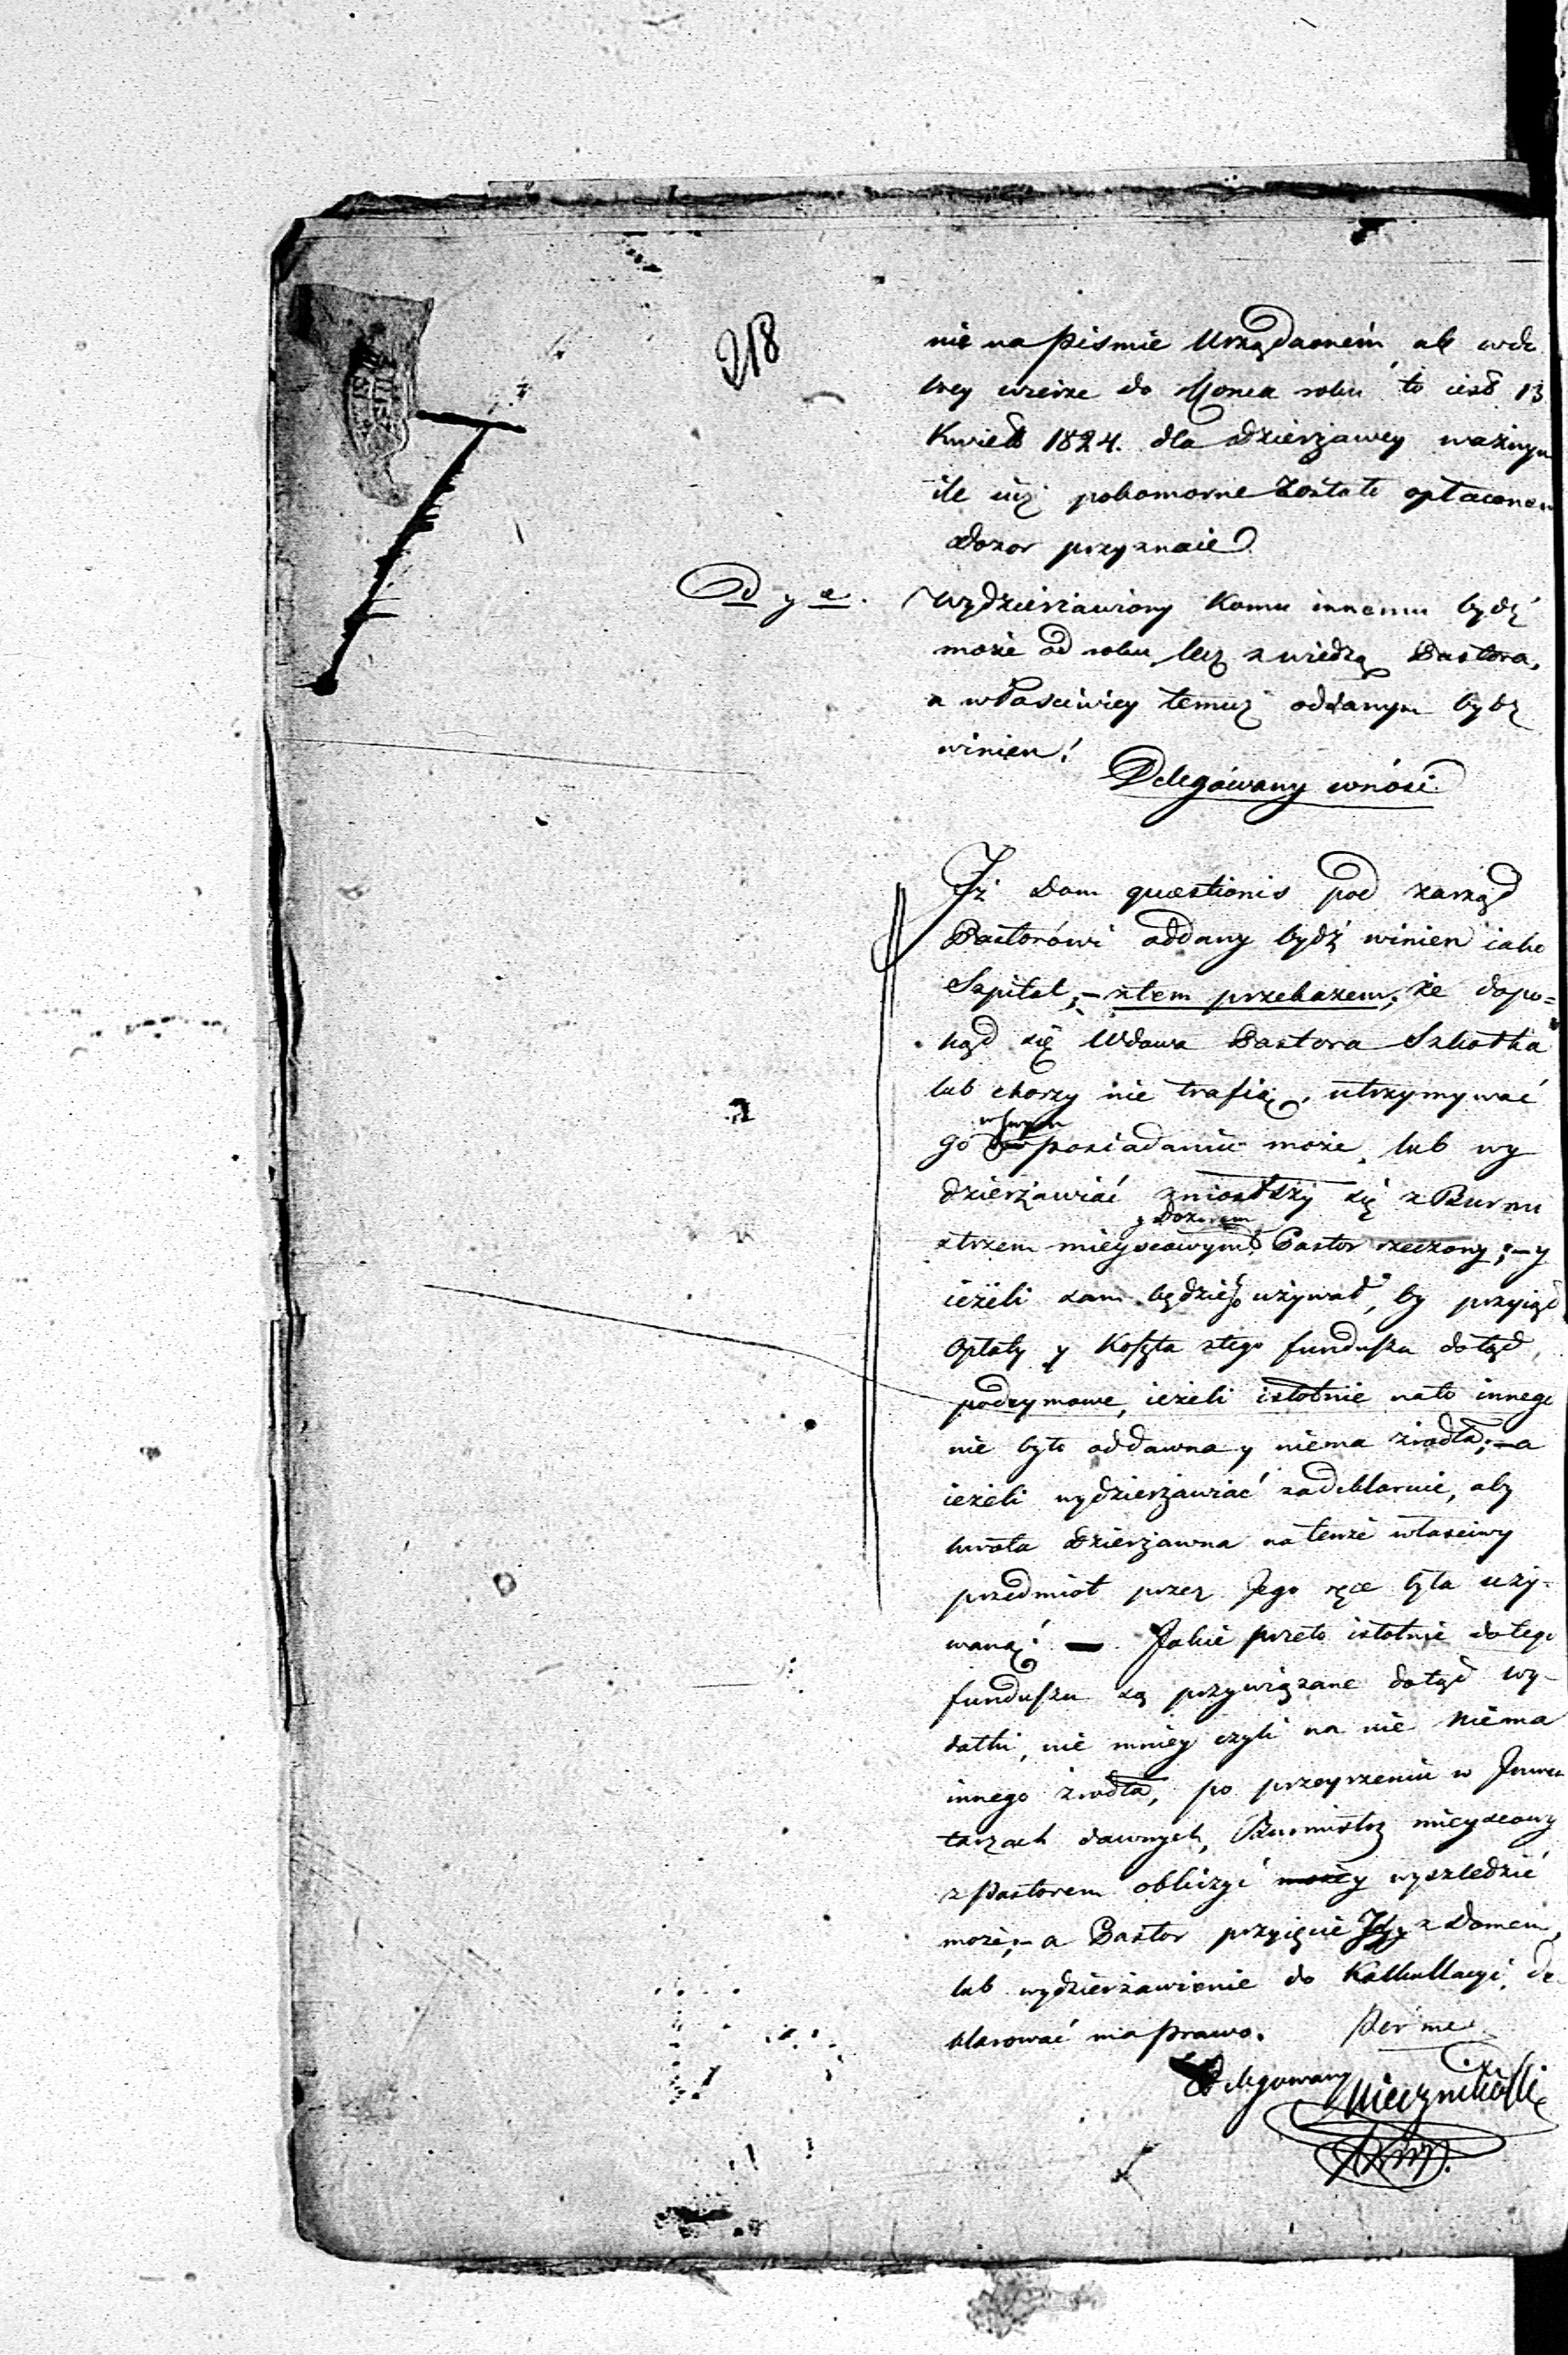 218
nie na piśmie Urzędownem, ale
wey mierze do Konca roku to iest 13
Kwiet 1824. dla dzierżawcy ważnym
ile iuż pokomorne zostało opłaconem
dozor przyznaie.
Ad y e. Wydzierżawiony komu innemu bydź
może od roku, lecz z wiedzą Pastora,
a właściwiey temuż oddanym bydź
winien!
Delegowany wnosi
Jż Dom quaestionis pod zarząd
Pastorowi oddany bydź winien iako
Szpital, – z tem przekazem, że dopo=
kąd się Wdowa Pastora Szkotka
lub chorzy nie trafią, utrzymywać
go w swym posiadaniu może, lub wy
dzierżawiać zniosłszy się z Burmi
strzem mieyscowym y Dozorem Pastor rzeczony; – y
ieżeli sam będzie go używał, by przyiął
opłaty y Koszta z tego funduszu dotąd
podeymowe, ieżeli istotnie na to innego
nie było oddawna y niema zrodła; – a
ieżeli wydzierżawiać zadeklaruie, aby
kwota dzierżawna na tenże własciwy
przedmiot przez Jego ręce była uży-
waną! — Jakie przeto istotnie do tego
funduszu są przywiązane dotąd wy-
datki, nie mniey czyli na nie niema
innego zrodła, po przeyrzeniu w Jnwen
tarzach dawnych, Burmistrz mieyscowy
z Pastorem obliczyć y wyszledzić
może, – a Pastor przyięcie z Domem,
lub wydzierżawienie do Kalkullacyi de
klarować ma prawo. Per me
Delegowany